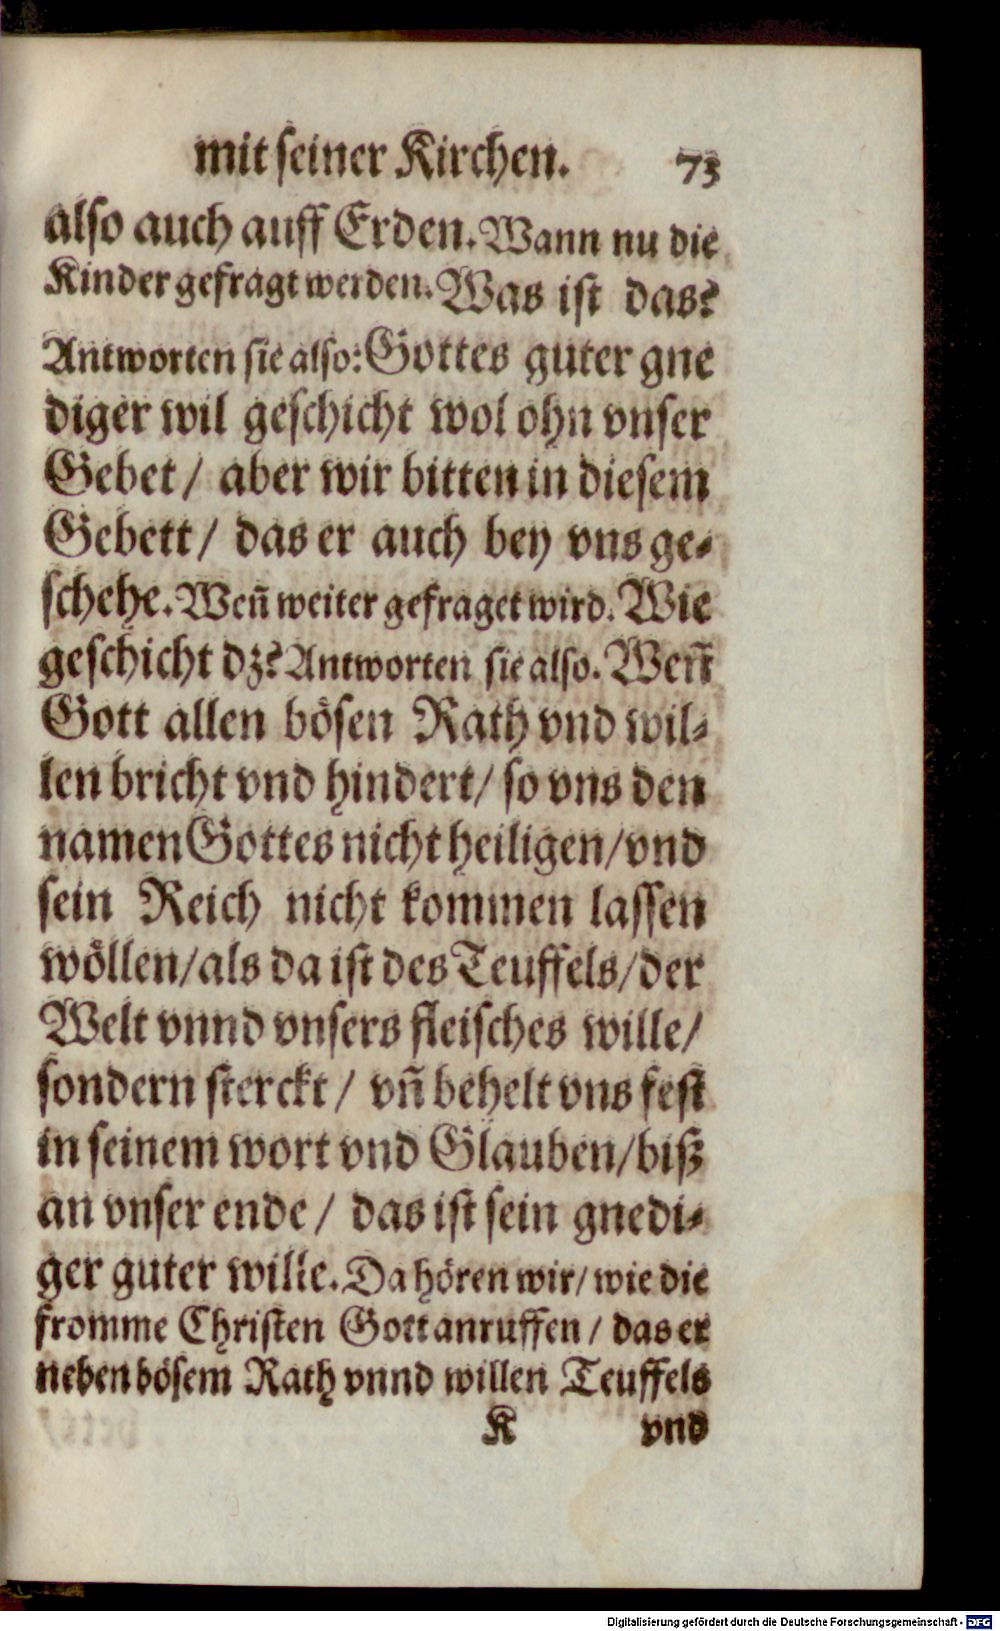 mit seiner Kirchen. 73
also auch auff Erden. Wann nu die
Kinder gefragt werden. Was ist das?
Antworten sie also: Gottes guter gne
diger wil geschicht wol ohn vnser
Gebet / aber wir bitten in diesem
Gebett / das er auch bey vns ge-
schehe. Weñ weiter gefraget wird. Wie
geschicht dz? Antworten sie also. Weñ
Gott allen bösen Rath vnd wil-
len bricht vnd hindert / so vns den
namen Gottes nicht heiligen / vnd
sein Reich nicht kommen lassen
wöllen / als da ist des Teuffels / der
Welt vnnd vnsers fleisches wille /
sondern sterckt / vñ behelt vns fest
in seinem wort vnd Glauben / biß
an vnser ende / das ist sein gnedi-
ger guter wille. Da hören wir / wie die
fromme Christen Gott anruffen / das er
neben bösem Rath vnnd willen Teuffels
K vnd
Digitalisierung gefördert durch die Deutsche Forschungsgemeinschaft - DFG